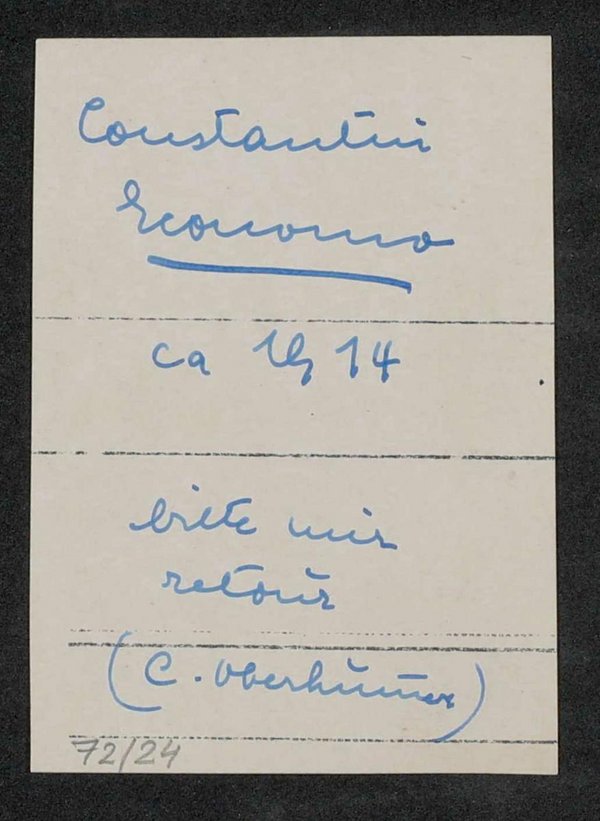 Constantin
Economo
ca 1914
bitte mir
retour
(C. Oberhummer)
72/24